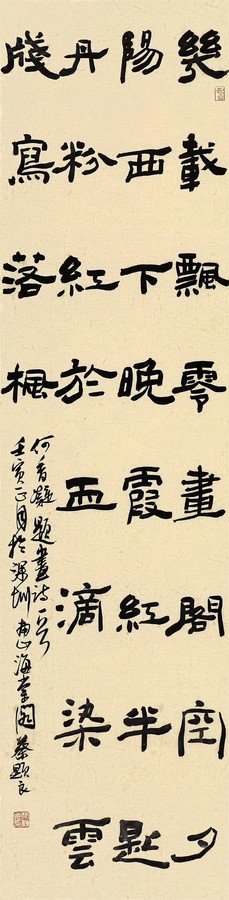 幾載飄零畫閣空夕
陽西下晚霞紅半匙
丹粉紅於血滴染雲
牋寫落楓
何香凝題畫詩一首
壬寅正月於深圳南山海棠閣蔡顯良